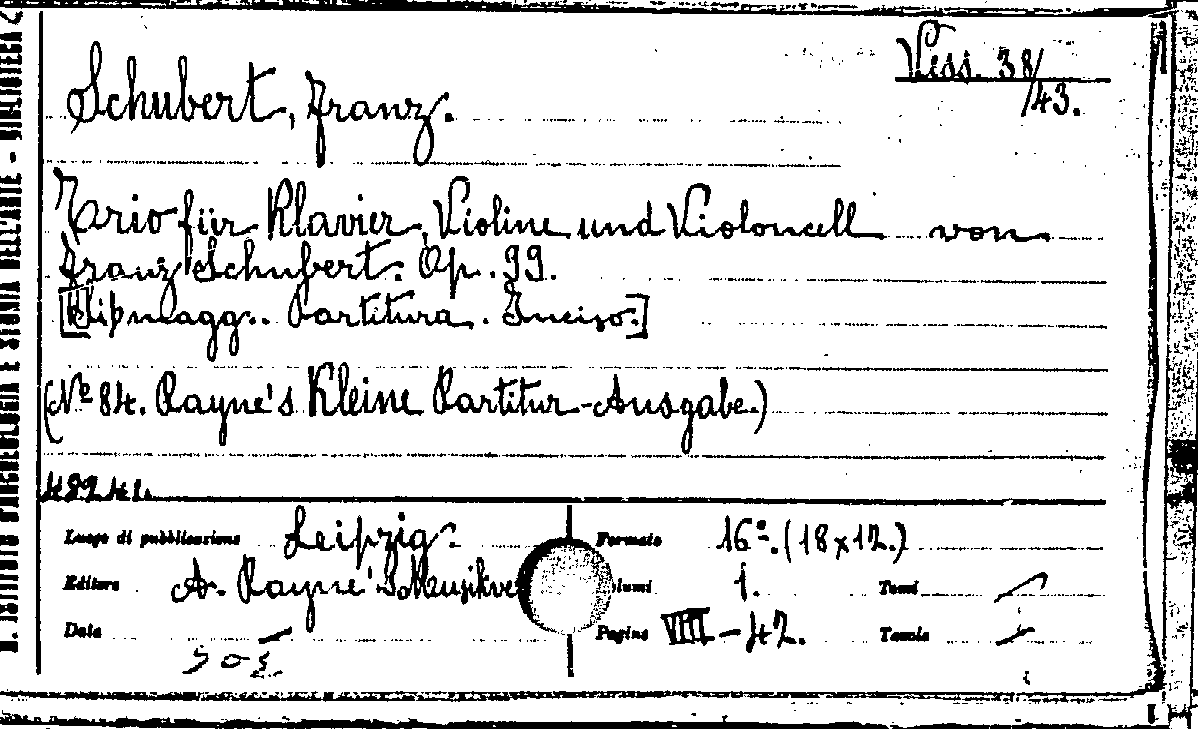 Vess. 38/
/43.
Schubert, Franz.
Trio für Klavier, Violine und Violoncell von
Franz Schubert. Op. 99.
Partitura. Inciso.]
(Nº 84. Payne's Kleine Partitur-Ausgabe.)
48241.
Luogo di pubblicazione Leipzig.
Formato 16º. (18x12.)
Editore A. Payne's
Volumi 1. Tomi
Data
Pagine VIII - 42. Tavole
R. ISTITUTO D'ARCHEOLOGIA E STORIA DELL'ARTE - BIBLIOTECA